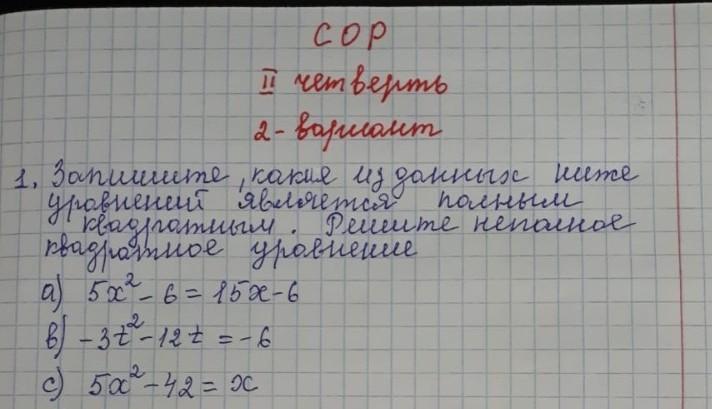 СОР
II четверть
2-вариант
1. Запишите, какие из данных ниже
уравнений является полным
квадратным. Решите неполное
квадратное уравнение
a) 5x² - 6 = 15x - 6
b) -3t² - 12t = -6
c) 5x² - 42 = x